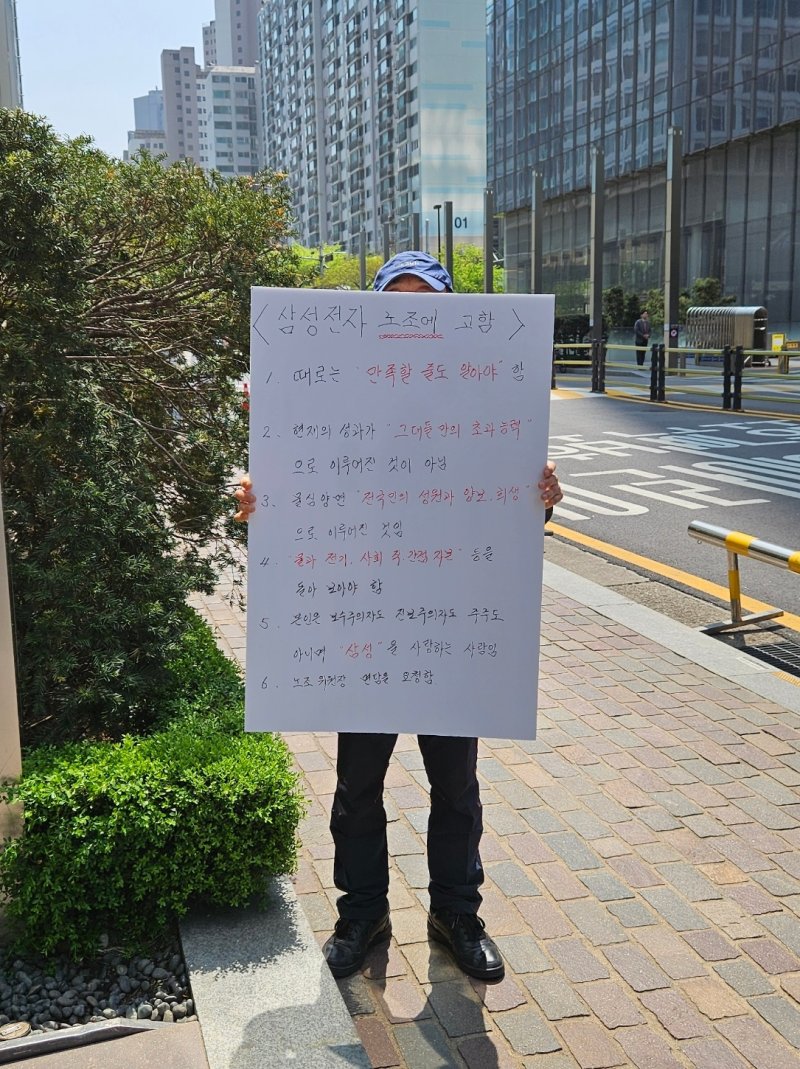 <삼성전자 노조에 고함>
1. 때로는 "만족할 줄도 알아야" 함
2. 현재의 성과가 "그대들만의 초과능력"
으로 이루어진 것이 아님
3. 물심양면 "전국민의 성원과 양보, 희생"
으로 이루어진 것임
4. "물과 전기, 사회 직.간접 자본" 등을
돌아 보아야 함
5. 본인은 보수주의자도 진보주의자도 주주도
아니며 "삼성"을 사랑하는 사람임
6. 노조위원장 면담을 요청함
01